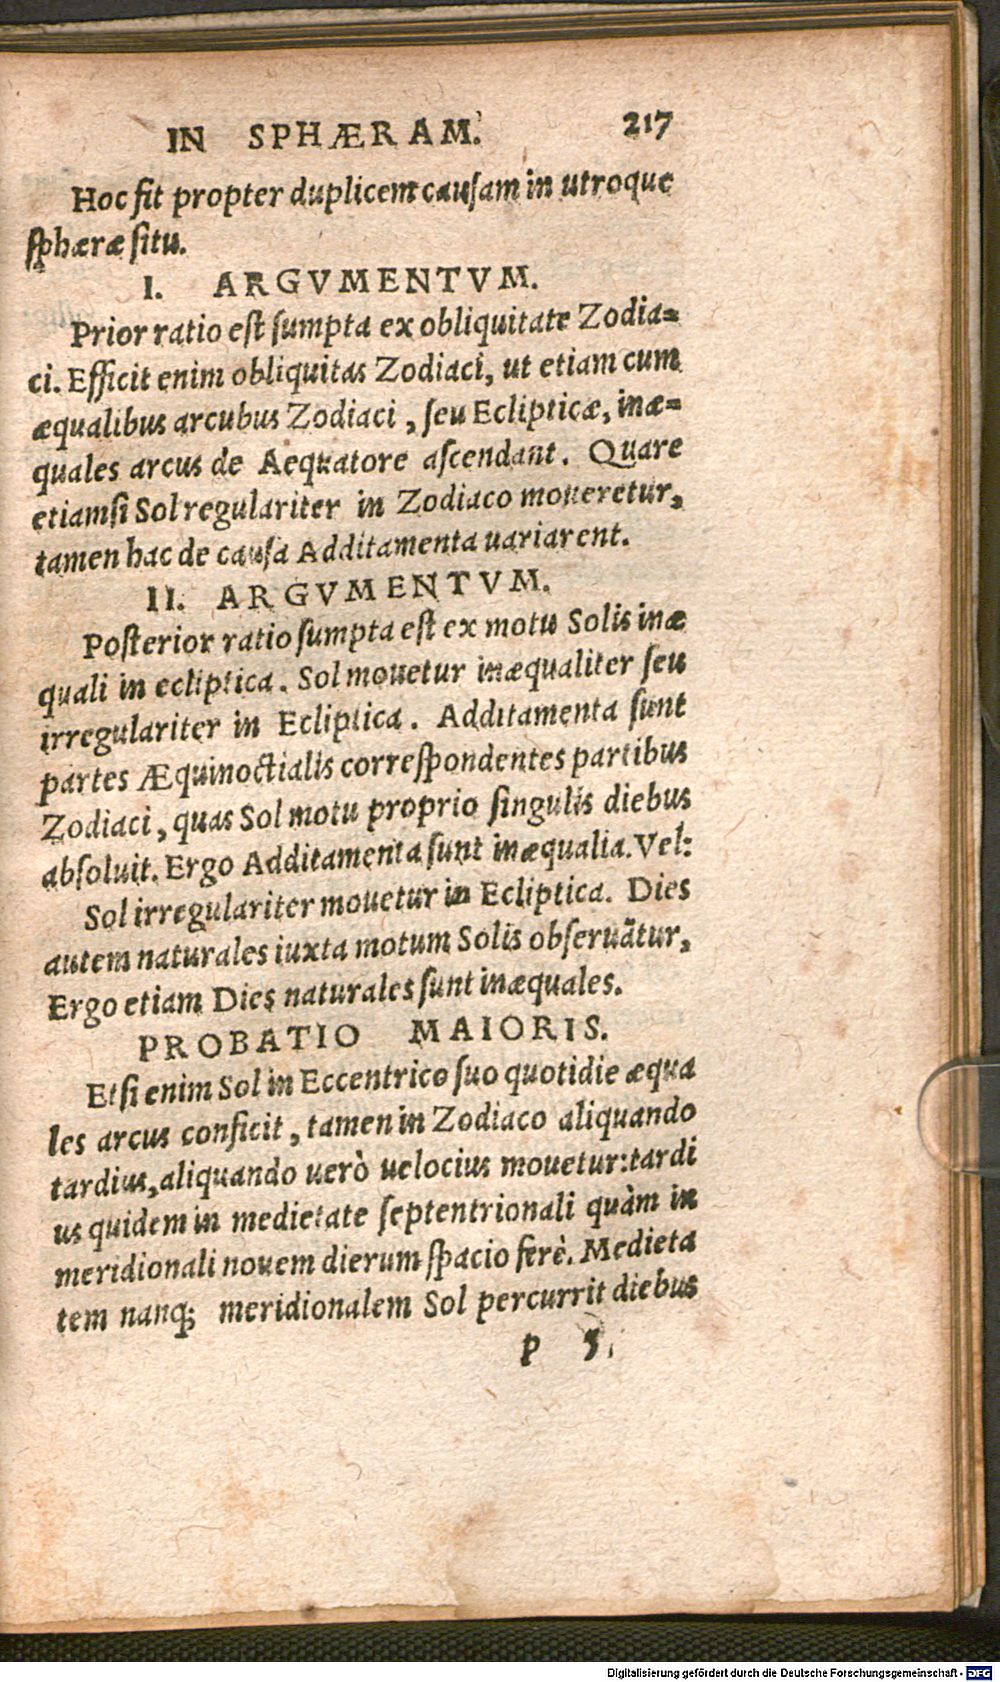 IN SPHÆRAM. 217
Hoc fit propter duplicem cauſam in utroque
ſphæræ ſitu.
I. ARGVMENTVM.
Prior ratio eſt ſumpta ex obliquitate Zodia=
ci. Efficit enim obliquitas Zodiaci, ut etiam cum
æqualibus arcubus Zodiaci, ſeu Eclipticæ, inæ=
quales arcus de Aequatore aſcendant. Quare
etiamſi Sol regulariter in Zodiaco moueretur,
tamen hac de cauſa Additamenta uariarent.
II. ARGVMENTVM.
Poſterior ratio ſumpta eſt ex motu Solis inæ
quali in ecliptica. Sol mouetur inæqualiter ſeu
irregulariter in Ecliptica. Additamenta ſunt
partes Æquinoctialis correſpondentes partibus
Zodiaci, quas Sol motu proprio ſingulis diebus
abſoluit. Ergo Additamenta ſunt inæqualia. Vel:
Sol irregulariter mouetur in Ecliptica. Dies
autem naturales iuxta motum Solis obſeruãtur,
Ergo etiam Dies naturales ſunt inæquales.
PROBATIO MAIORIS.
Etſi enim Sol in Eccentrico ſuo quotidie æqua
les arcus conficit, tamen in Zodiaco aliquando
tardius, aliquando uerò uelocius mouetur: tardi
us quidem in medietate ſeptentrionali quàm in
meridionali nouem dierum ſpacio ferè. Medieta
tem nanq; meridionalem Sol percurrit diebus
P 5.
Digitalisierung gefördert durch die Deutsche Forschungsgemeinschaft - DFG